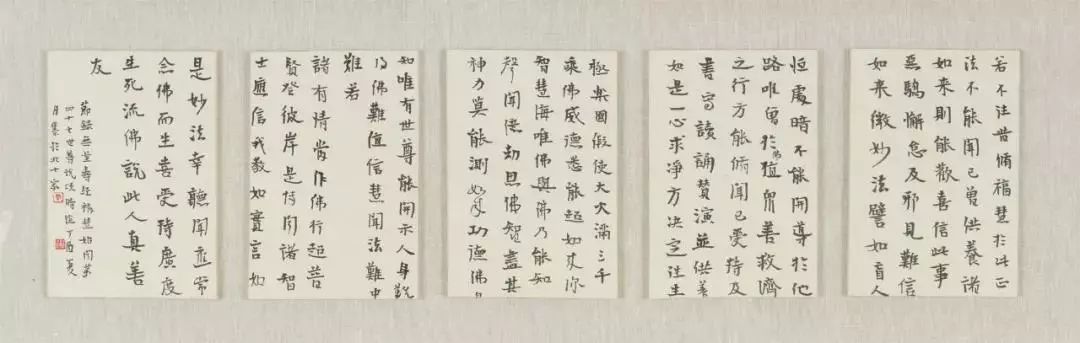 若不往昔脩福慧於此正
法不能聞已曾供養諸
如来則能歡喜信此事
惡驕懈怠及邪見難信
如来微妙法譬如盲人
恒處暗不能開導於他
路唯曾於佛殖眾善救濟
之行方能脩聞已受持及
書寫讀誦赞演並供養
如是一心求凈方决定往生
極樂國假使大火滿三千
乘佛威德悉能超如来深
智慧海唯佛與佛乃能知
聲聞億劫思佛智盡其
神力莫能測如来功德佛自
知唯有世尊能開示人身難
得佛難值信慧聞法難中
難若
諸有情當作佛行超普
賢登彼岸是故聞諸智
士應信我教如實言如
是妙法幸聽聞應常
念佛而生喜受持廣度
生死流佛說此人真善
友
節録無量壽經福慧始聞第
四十七世尊說法時 丁酉夏
月集於北十家